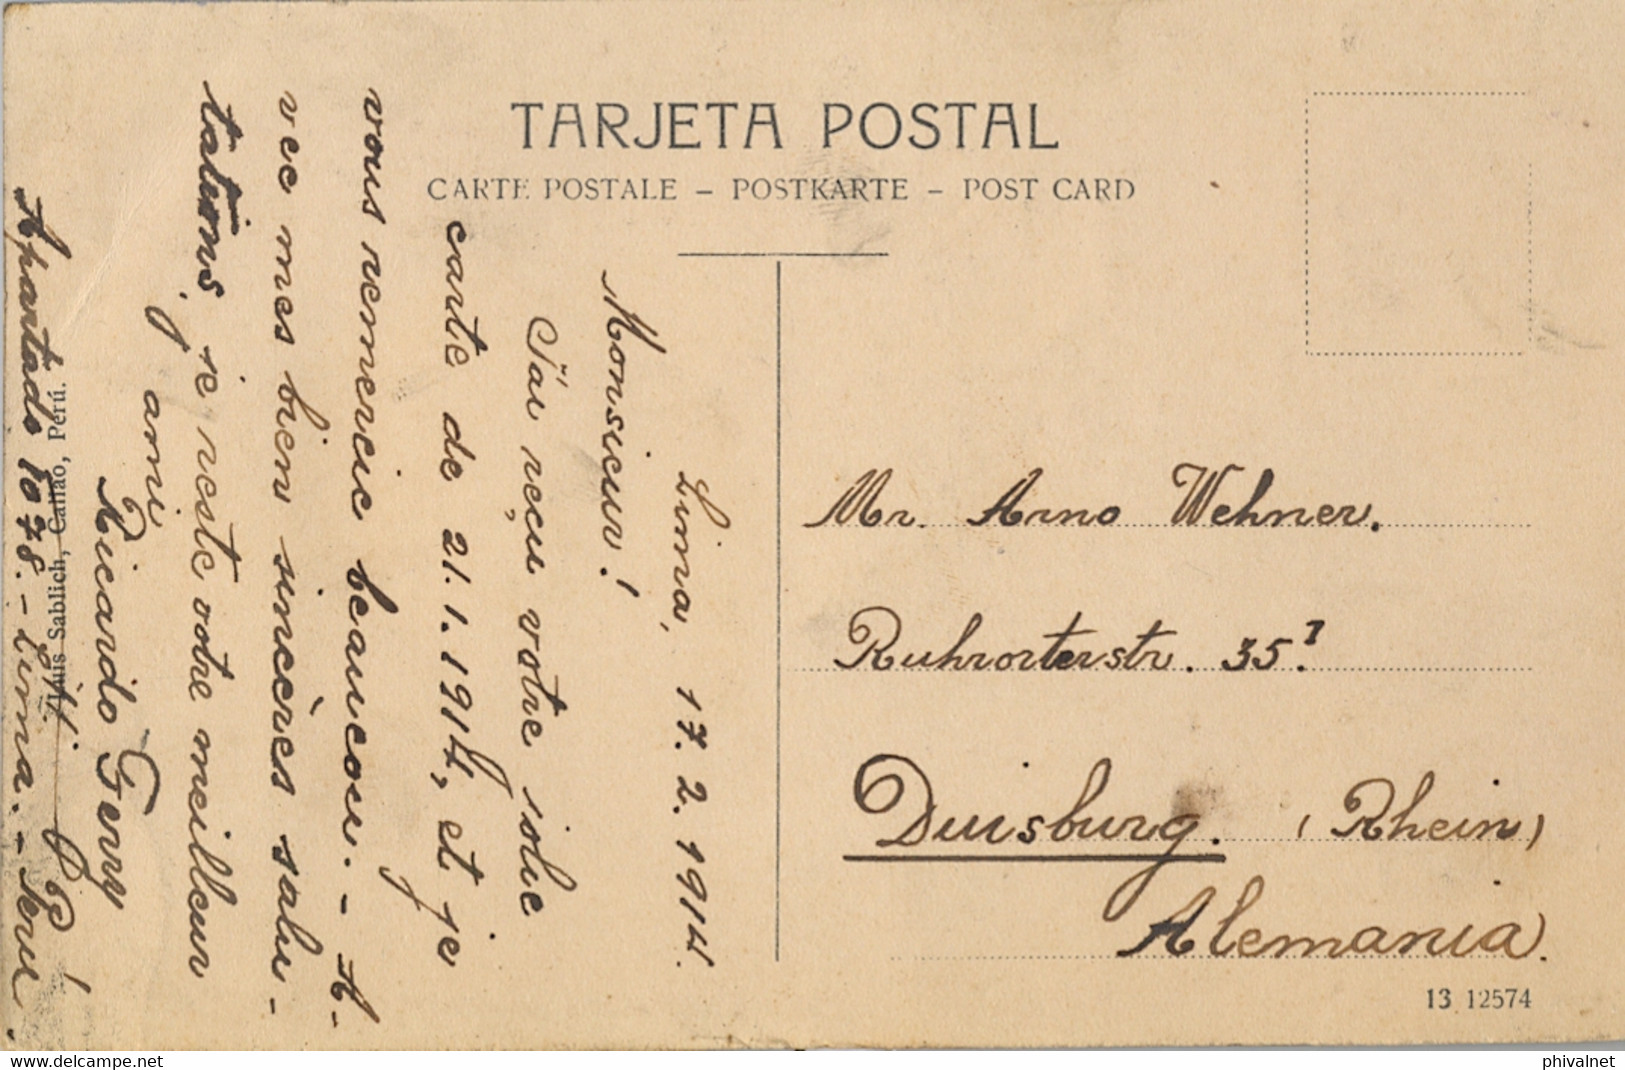 TARJETA POSTAL
CARTE POSTALE – POSTKARTE – POST CARD
Lima, 17. 2. 1914.
Monsieur!
J'ai reçu votre jolie
carte de 21. 1. 1914, et je
vous remercie beaucou. - A-
vec mes bien sincères salu-
tations je reste votre meilleur
ami
Ricardo Ferry
Apartado 1078. - Lima. - Perú.
Luis Sablich, Callao, Perú.
Mr. Arno Wehner.
Ruhrorterstr. 35.I
Duisburg. (Rhein)
Alemania.
13 12574
phivalnet